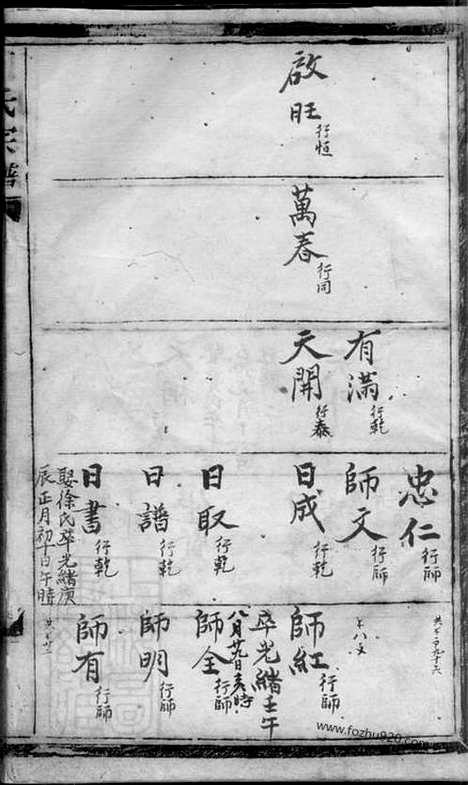 氏宗譜
啟旺 行恒
萬春 行同
有滿 行乾
天開 行泰
忠仁 行師
師文 行師
日成 行乾
日取 行乾
日譜 行乾
日書 行乾
娶徐氏卒光緒庚
辰正月初十日午時
師紅 行師
卒光緒壬午
八月廿九日亥時
師全 行師
師明 行師
師有 行師
www.fozhu920.com